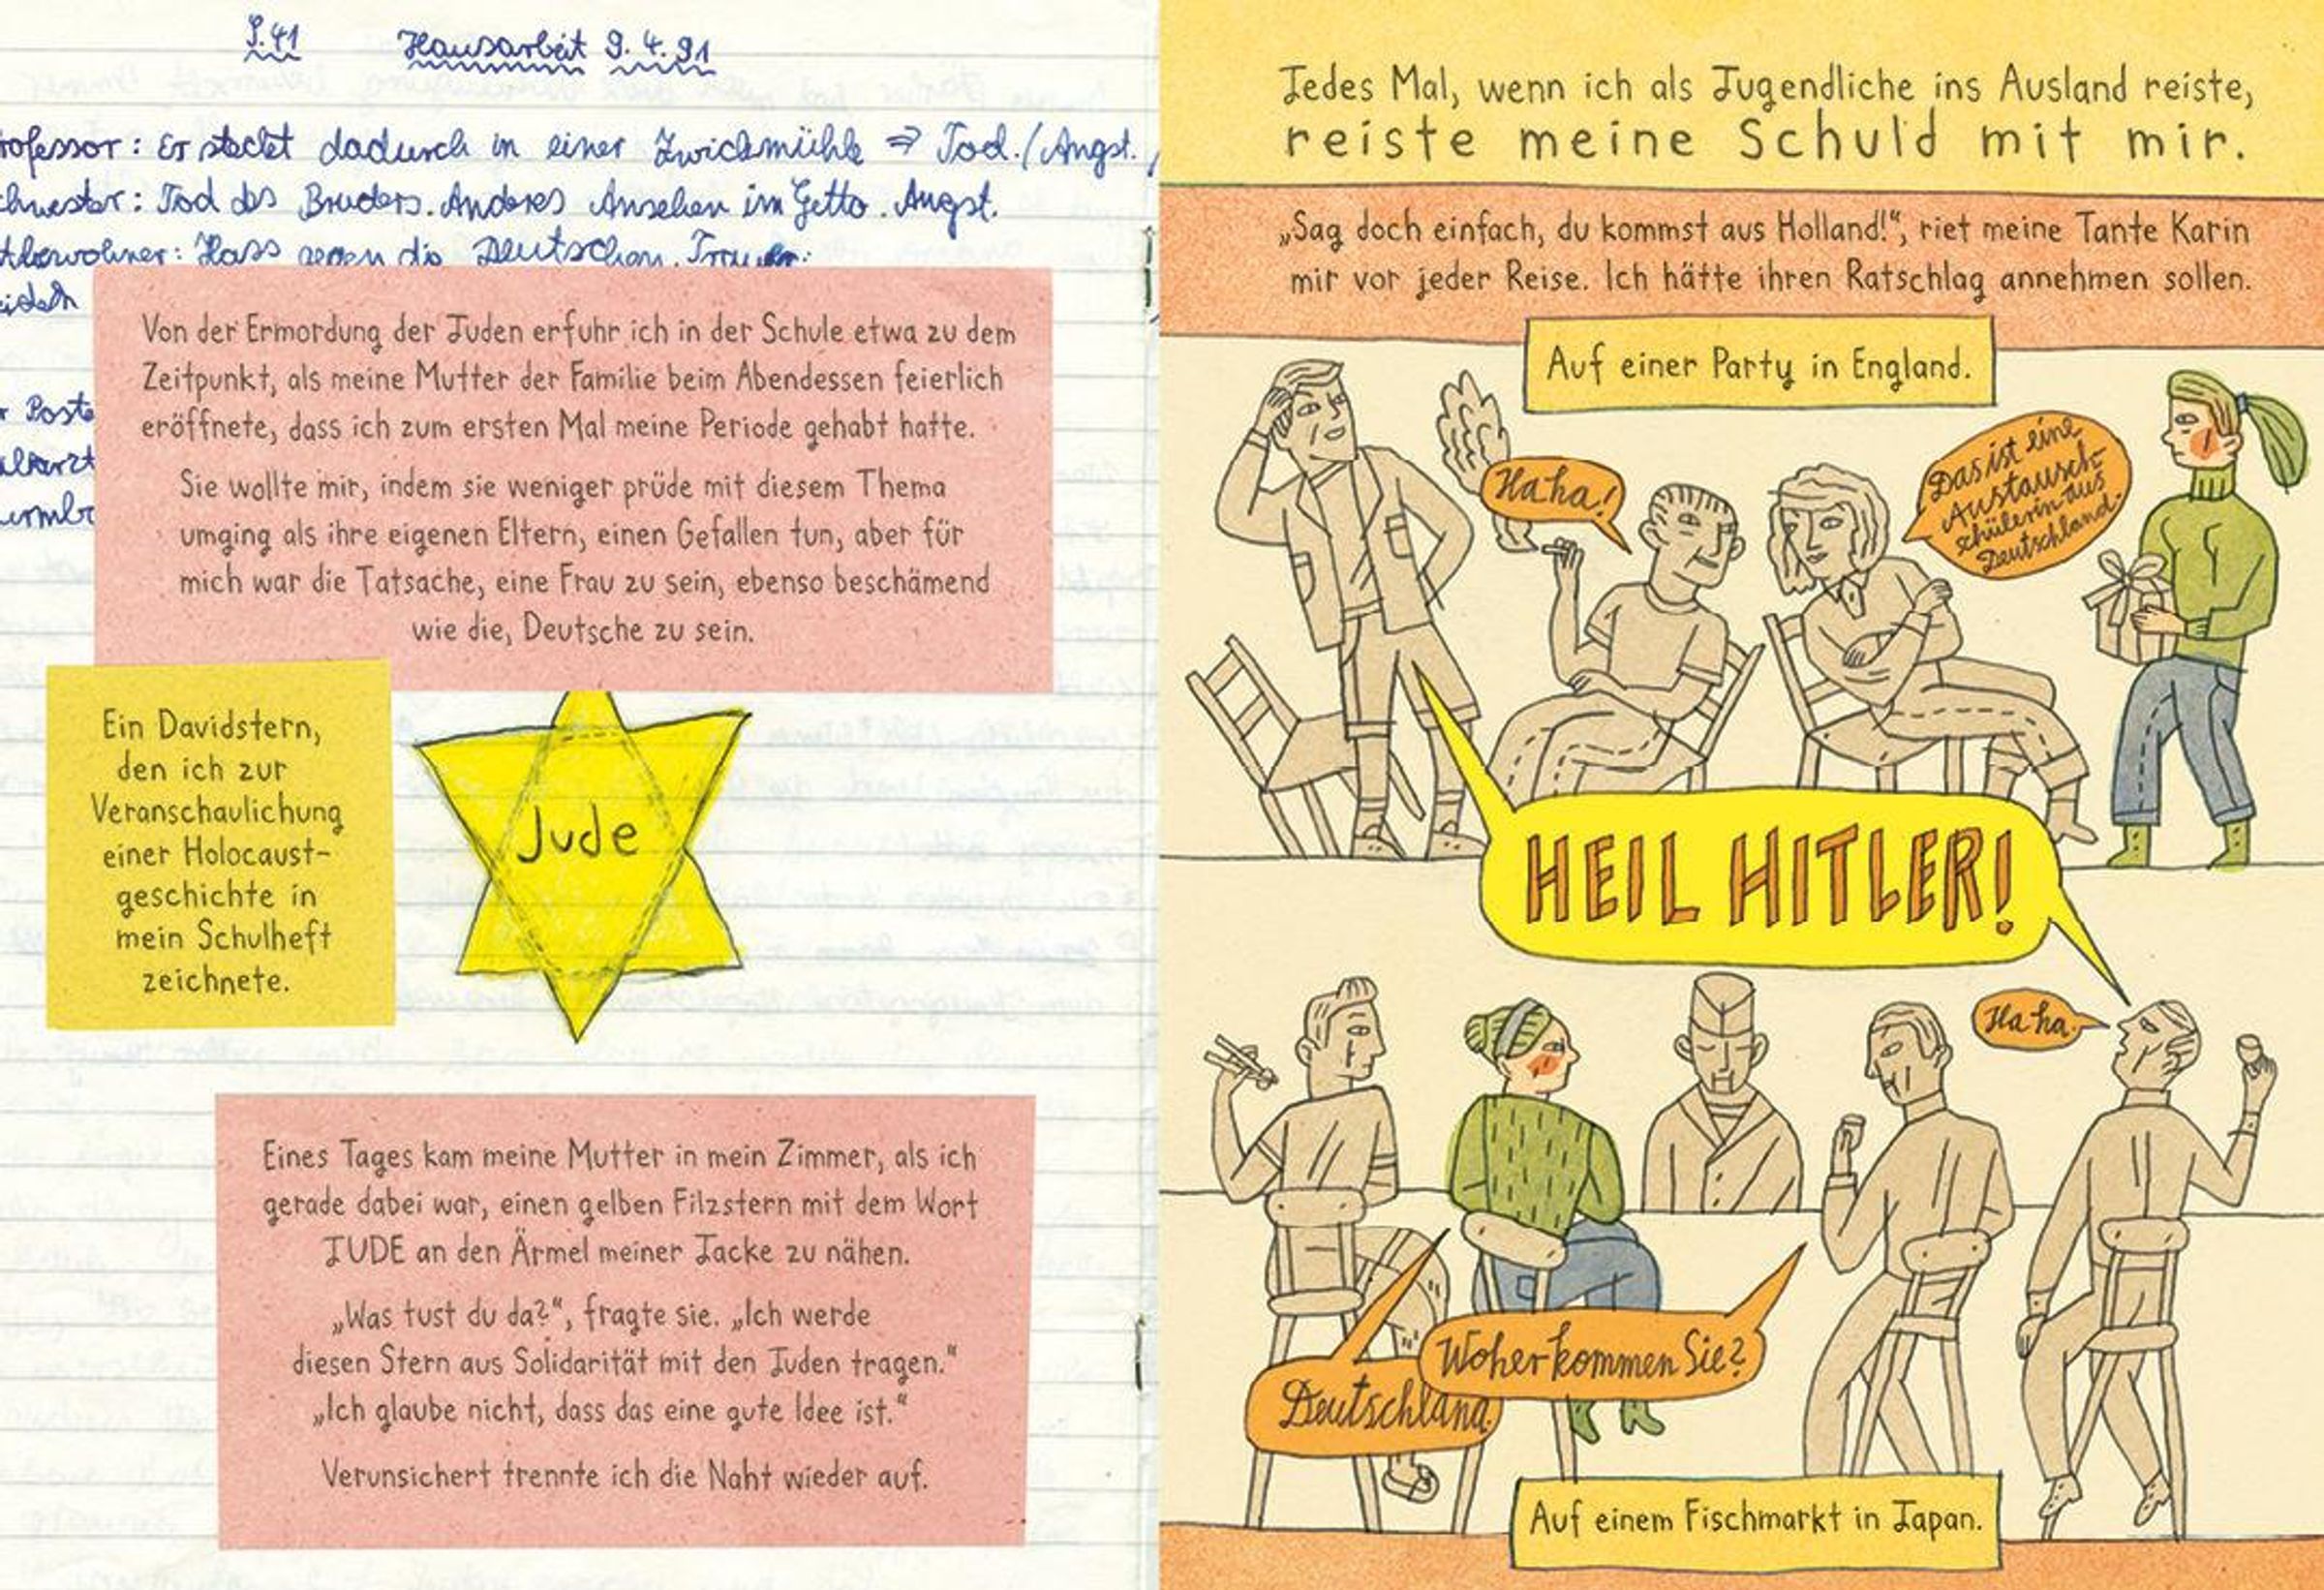 S.41 Hausarbeit 9.4.91
rofessor: Er steckt dadurch in einer Zwickmühle ⇒ Tod. (Angst.
chwester: Tod des Bruders. Anderes Ansehen im Getto. Angst.
tbewohner: Hass gegen die Deutschen. Trauer.
eiden
Von der Ermordung der Juden erfuhr ich in der Schule etwa zu dem
Zeitpunkt, als meine Mutter der Familie beim Abendessen feierlich
eröffnete, dass ich zum ersten Mal meine Periode gehabt hatte.
Sie wollte mir, indem sie weniger prüde mit diesem Thema
umging als ihre eigenen Eltern, einen Gefallen tun, aber für
mich war die Tatsache, eine Frau zu sein, ebenso beschämend
wie die, Deutsche zu sein.
Ein Davidstern,
den ich zur
Veranschaulichung
einer Holocaust-
geschichte in
mein Schulheft
zeichnete.
Jude
Eines Tages kam meine Mutter in mein Zimmer, als ich
gerade dabei war, einen gelben Filzstern mit dem Wort
JUDE an den Ärmel meiner Jacke zu nähen.
„Was tust du da?“, fragte sie. „Ich werde
diesen Stern aus Solidarität mit den Juden tragen.“
„Ich glaube nicht, dass das eine gute Idee ist.“
Verunsichert trennte ich die Naht wieder auf.
Jedes Mal, wenn ich als Jugendliche ins Ausland reiste,
reiste meine Schuld mit mir.
„Sag doch einfach, du kommst aus Holland!“, riet meine Tante Karin
mir vor jeder Reise. Ich hätte ihren Ratschlag annehmen sollen.
Auf einer Party in England.
Haha!
Das ist eine
Austausch-
schülerin aus
Deutschland.
HEIL HITLER!
Haha.
Woher kommen Sie?
Deutschland.
Auf einem Fischmarkt in Japan.